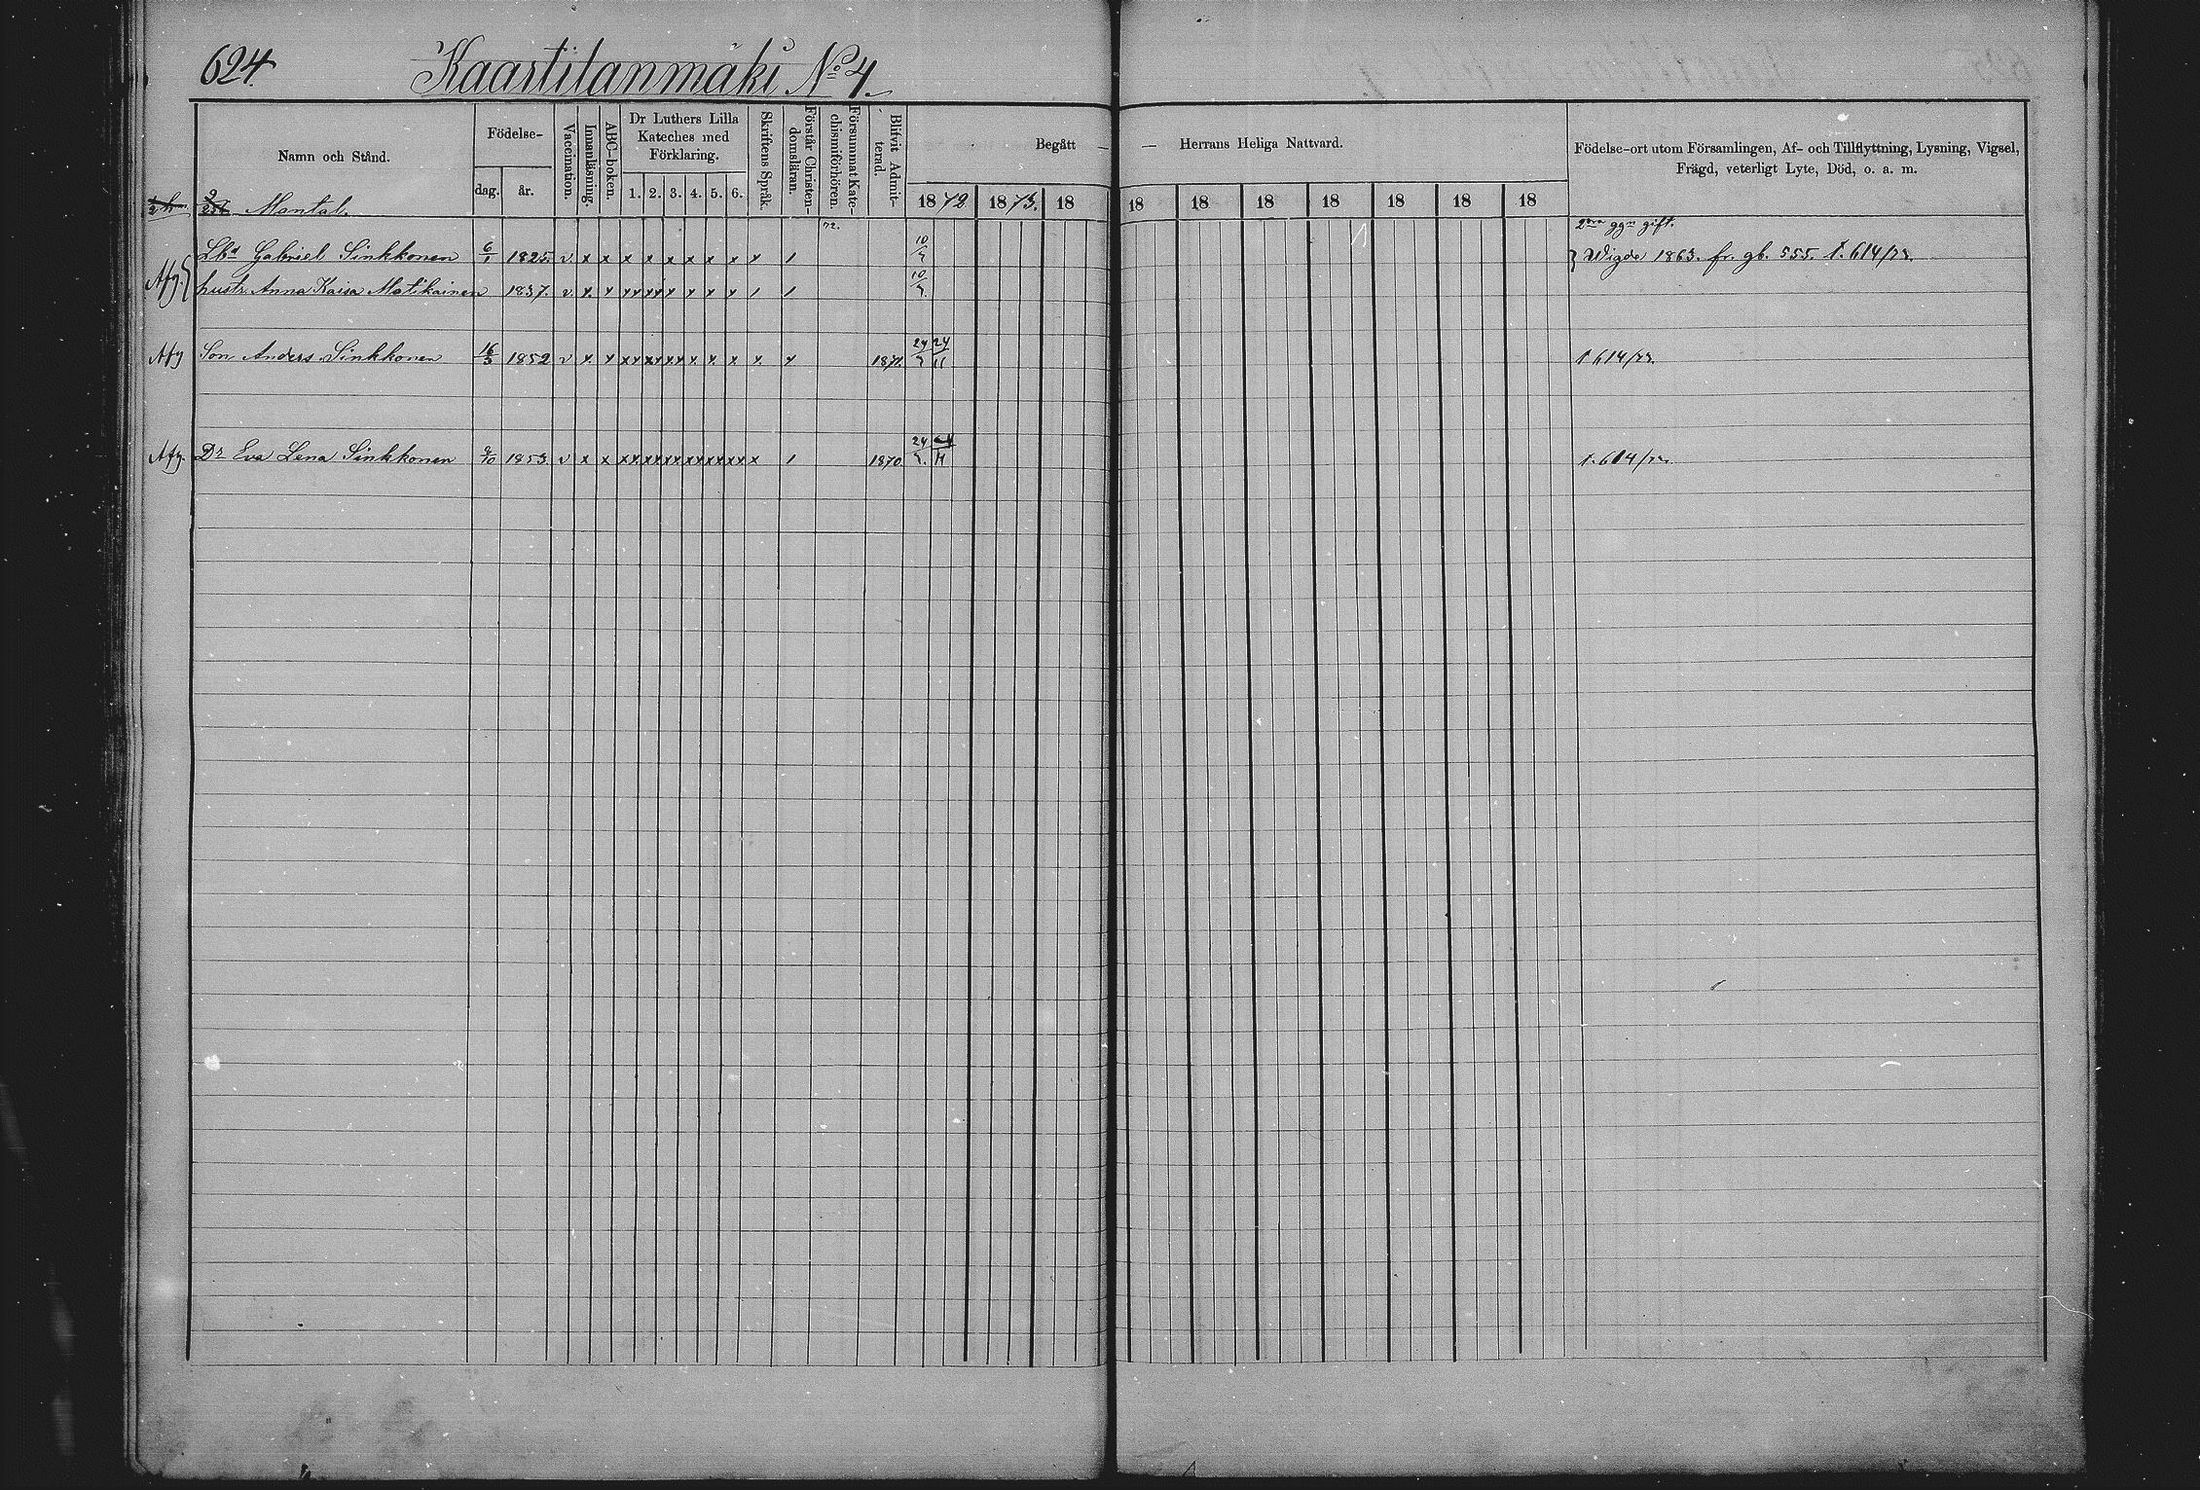 624. Kaartilanmäki No 4.
Namn och Stånd.
Födelse-
dag. år.
Vaccination.
Innanläsning.
ABC-boken.
Dr Luthers Lilla
Kateches med
Förklaring.
1. 2. 3. 4. 5. 6.
Skriftens Språk.
Förstår Christen-
domsläran.
Försummat Kate-
chismiförhören.
Blifvit Admit-
terad.
Begått — — Herrans Heliga Nattvard.
1872 1873. 18 18 18 18 18 18 18 18
Födelse-ort utom Församlingen, Af- och Tillflyttning, Lysning, Vigsel,
Frägd, veterligt Lyte, Död, o. a. m.
Mantal.
72. 2dra ggn gift.
Gabriel Sinkkonen 6/1 1825. v x x x x x x x x x 1 10/7 Vigde 1863. fr. gb. 555. f. 614/72.
Afg. hustr. Anna Kaisa Matikainen 1837. v x x xx xx x x x x 1 1 10/7.
Afg Son Anders Sinkkonen 16/3 1852 v x x xx xx xx x x x x x 1871. 24/7 24/11 f 614/72.
Afg. Dr Eva Lena Sinkkonen 9/10 1853. v x x xx xx xx xx xx xx x 1 1870 24/7. 24/11 f. 614/72.